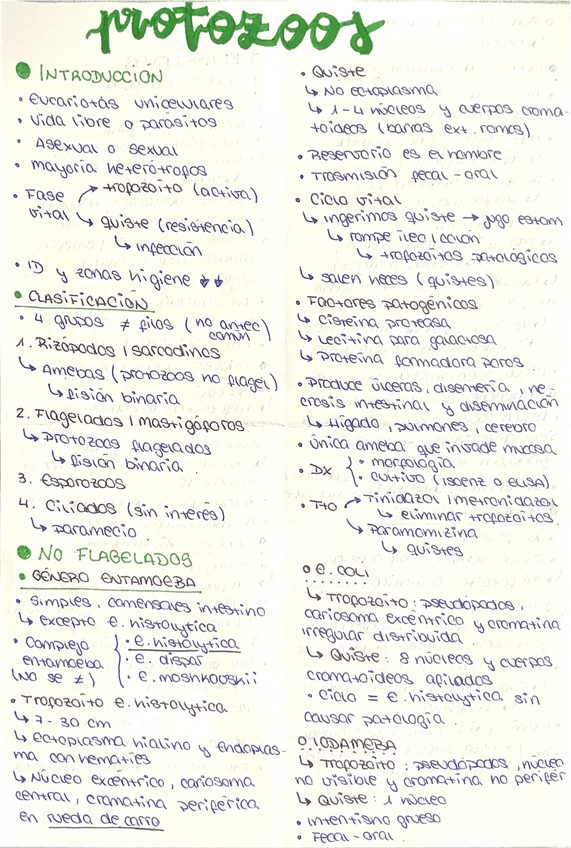 protozoos
INTRODUCCION
• Eucariotas unicelulares
• Vida libre o parásitos
• Asexual o sexual
• mayoría heterótropos
• Fase vital → tropozoito (activa)
↳ quiste (resistencia)
↳ infección
• ID y zonas higiene ↓↓
• CLASIFICACIÓN
• 4 grupos ≠ filos (no antec)
común
1. Rizópodos / sarcodinos
↳ Amebas (protozoos no flagel)
↳ fisión binaria
2. Flagelados / mastigóforos
↳ protozoos flagelados
↳ fisión binaria
3. Esporozoos
4. Ciliados (sin interés)
↳ paramecio
NO FLAGELADOS
• GÉNERO ENTAMOEBA
• simples, comensales intestino
↳ excepto e. histolytica
• Complejo entamoeba (no se ≠)
• e. histolytica
• e. dispar
• e. moshkouskii
• Tropozoito e. histolytica
↳ 7-30 cm
↳ Ectoplasma hialino y endoplas-
ma con hematíes
↳ Núcleo excéntrico, cariosoma
central, cromatina periférica
en rueda de carro
• Quiste
↳ No ectoplasma
↳ 1-4 núcleos y cuerpos croma-
toideos (barras ext. romos)
• Reservorio es el hombre
• Trasmisión fecal-oral
• Ciclo vital
↳ ingerimos quiste → jugo estom
↳ rompe íleo / colon
↳ tropozoitos patológicos
↳ salen heces (quistes)
• Factores patogénicos
↳ Cisteína proteasa
↳ Lecitina para galactosa
↳ Proteína formadora poros
• Produce úlceras, disentería, ne-
crosis intestinal y diseminación
↳ Hígado, pulmones, cerebro
• única ameba que invade mucosa
• DX • morfología
• cultivo (isoenz o ELISA)
• Tto → Tinidazol / metronidazol
↳ eliminar tropozoitos
↳ Paramomizina
↳ quistes
o e. COLI
↳ Tropozoito: pseudópodos,
cariosoma excéntrico y cromatina
irregular distribuida.
↳ Quiste: 8 núcleos y cuerpos
cromatoideos afilados
• Ciclo = e. histolytica sin
causar patología
o IODAMEBA
↳ Tropozoito: pseudópodos, núcleo
no visible y cromatina no perifér
↳ Quiste: 1 núcleo
• intentisno grueso
• Fecal-oral.